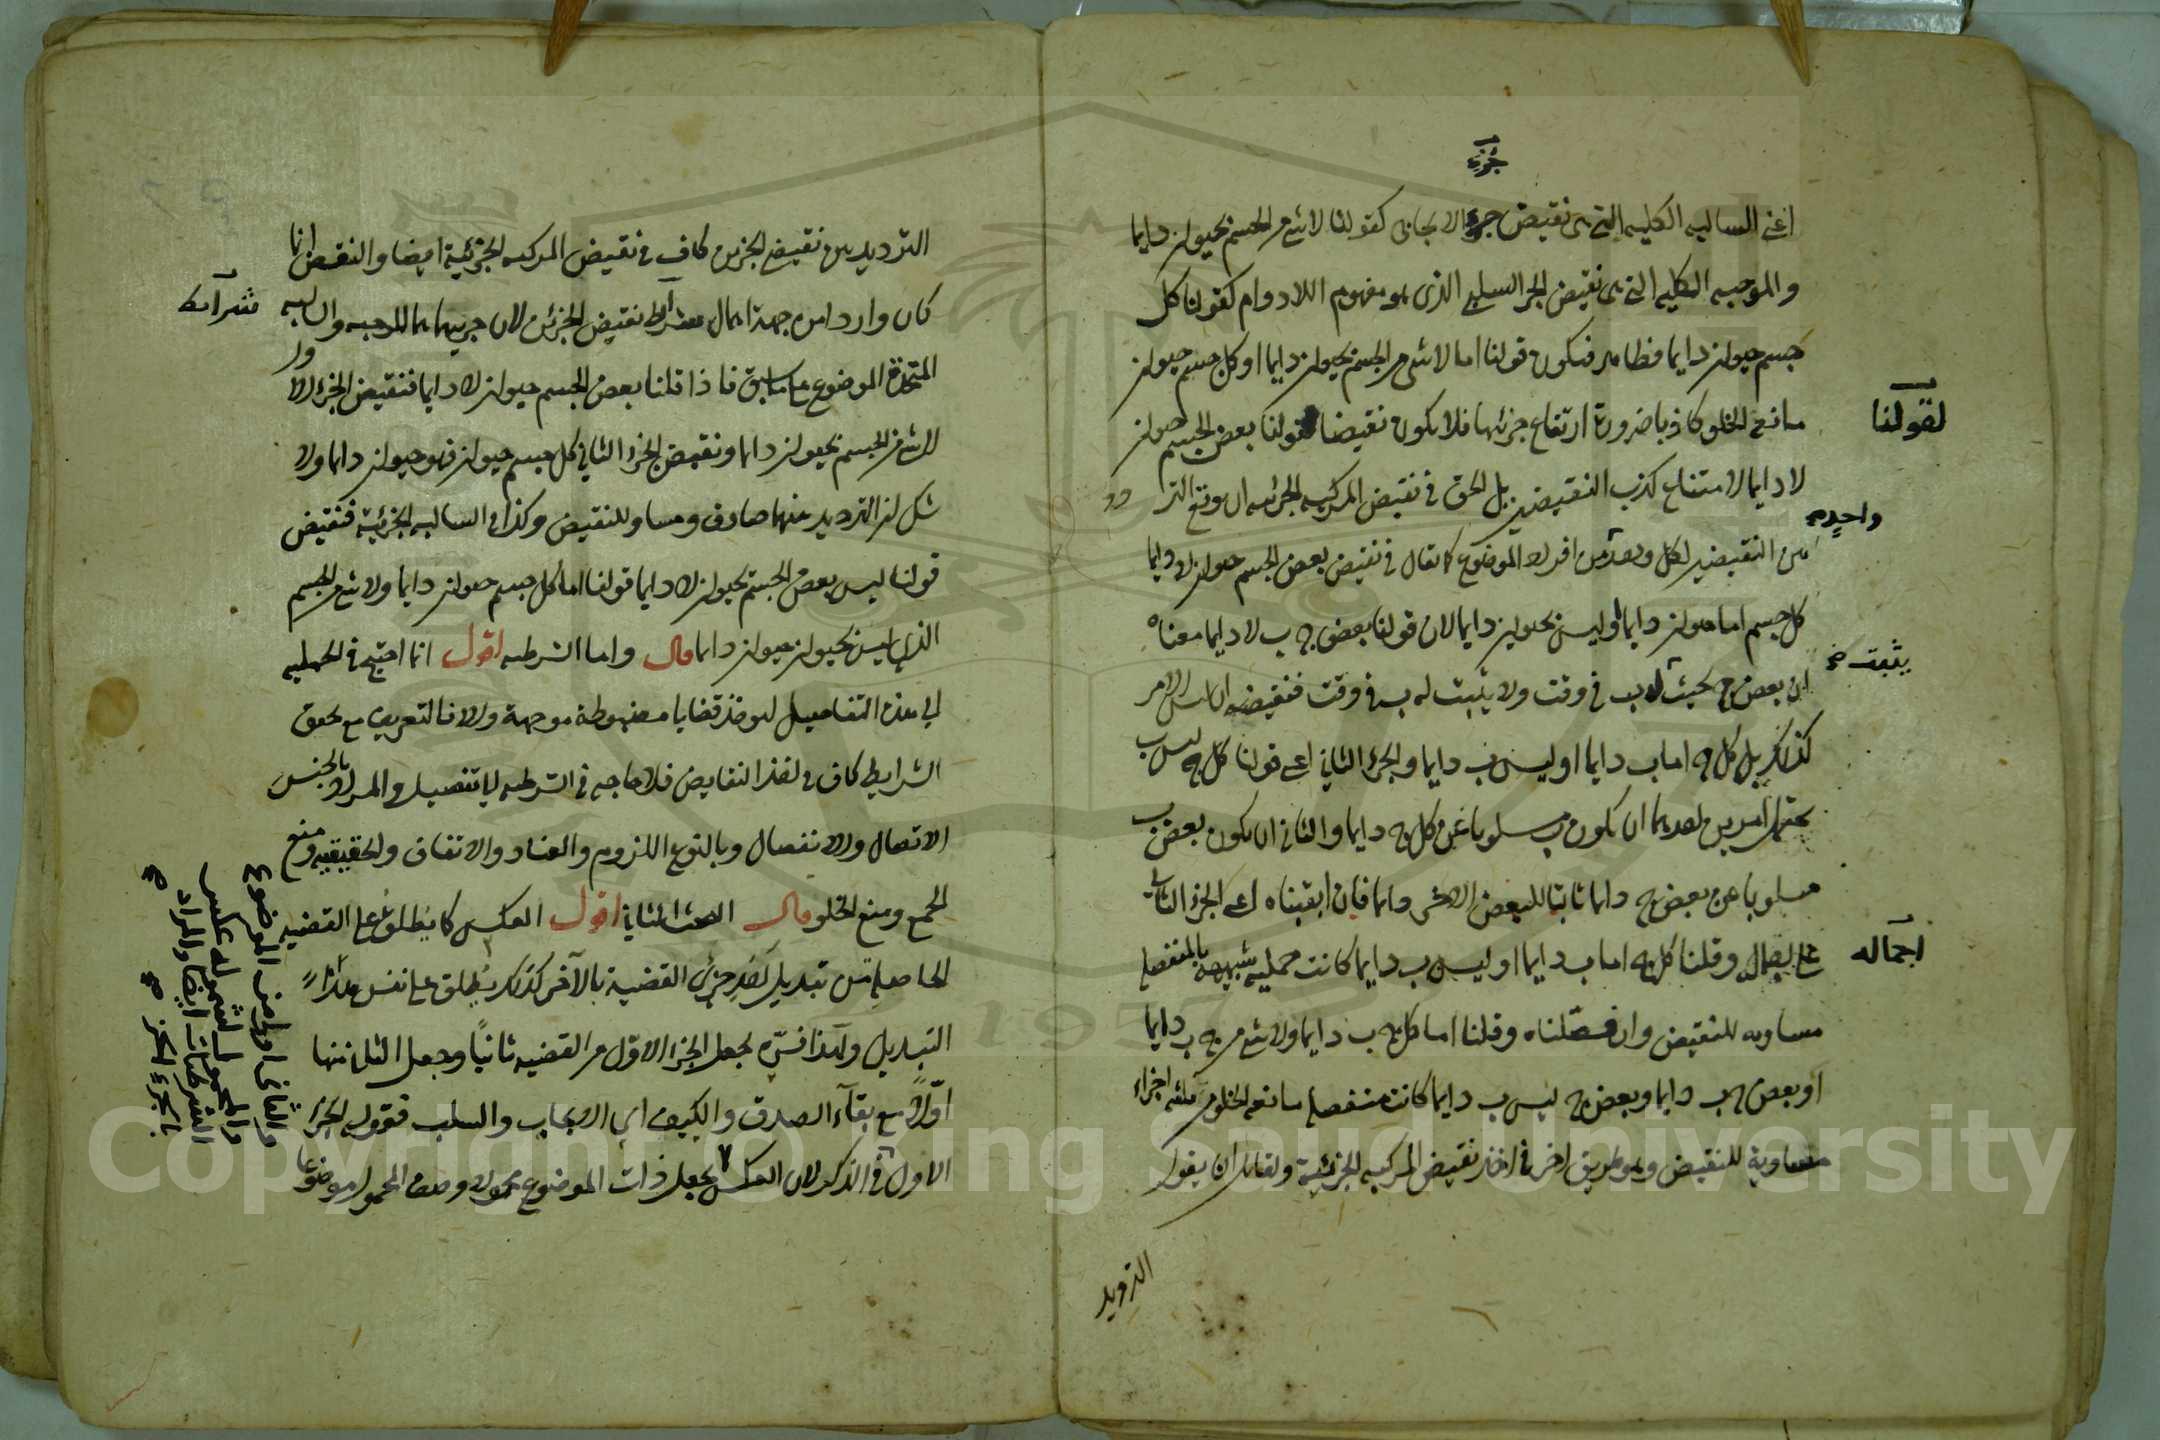 جزء
اعنى السالبه الكليه التى هى نقيض جزء الايجابى كقولنا لا شئ من الجسم بحيوان دايما
والموجبه الكليه التى هى نقيض الجزء السلبى الذى هو مفهوم اللادوام كقولنا كل
جسم حيوان دايما فظاهر فيكون قولنا اما لا شئ من الجسم بحيوان دايما او كل جسم حيوان
مانعه الخلو كاذبا ضرورة ارتفاع جزئيها فلا يكون نقيضا لقولنا بعض الجسم حيوان
لقولنا
لا دايما لامتناع كذب النقيضين بل الحق فى نقيض المركبه الجزئيه ان يوقع الترد
من النقيضين لكل واحد من افراد الموضوع كما يقال فى نقيض بعض الجسم حيوان لا دايما
واحد
كل جسم اما حيوان دايما او ليس بحيوان دايما لان قولنا بعض ج ب لا دايما معناه
ان بعض ج بحيث له ب فى وقت ولا يثبت له ب فى وقت فنقيضه ان ليس الامر
يثبت
كذلك بل كل ج اما ب دايما او ليس ب دايما والجزء الثانى اعنى قولنا كل ج ليس ب
يحتمل امرين احدهما ان يكون ب مسلوبا عن كل ج دايما والثانى ان يكون بعض ب
مسلوبا عن بعض ج دايما ثابتا للبعض الاخر دايما فان ابقيناه اعنى الجزء الثانى
على اجماله وقلنا كل ج اما ب دايما او ليس ب دايما كانت حمليه شبيهه بالمنفصله
اجماله
مساويه للنقيض وان فصلناه وقلنا اما كل ج ب دايما ولا شئ من ج ب دايما
او بعض ج ب دايما وبعض ج ليس ب دايما كانت منفصله مانعه الخلو من ثلثه اجزاء
متساوية للنقيض وهو طريق اخر فى اخذ نقيض المركبه الجزئية ولقائل ان يقول
الترديد
الترديد بين نقيضى الجزئين كاف فى نقيض المركبه الجزئية ايضا والنقض انما
كان واردا من جهة اهمال شرائط نقيض الجزئين لان جزئيهما هما الموجبه والسالبه
شرائط
المتحدة الموضوع على ما سبق فاذا قلنا بعض الجسم حيوان لا دايما فنقيض الجزء الاول
لا شئ من الجسم بحيوان دايما ونقيض الجزء الثانى كل جسم حيوان فهو حيوان دايما ولا
شك ان الترديد بينهما صادق ومساو للنقيض وكذا فى السالبه الجزئية فنقيض
قولنا ليس بعض الجسم بحيوان لا دايما قولنا اما كل جسم حيوان دايما ولا شئ من الجسم
الذى ليس بحيوان حيوان دايما قال واما الشرطيه اقول انما احتيج فى الحمليه
الى هذه التفاصيل ليوخذ قضايا مضبوطة موجهة والا فالتعريف مع تحقق
الشرايط كاف فى اخذ النقايض فلا حاجه فى الشرطيه الى تفصيل والمراد بالجنس
الاتصال والانفصال وبالنوع اللزوم والعناد والاتفاق والحقيقيه ومنع
الجمع ومنع الخلو قال البحث الثانى اقول العكس كما يطلق على القضيه
الحاصلة من تبديل احد جزئى القضية بالآخر كذلك يطلق على نفس هذا
التبديل ولهذا فسره بجعل الجزء الاول من القضيه ثانيا وجعل الثانى منها
اولا مع بقاء الصدق والكيف اى الايجاب والسلب فقوله الجزء
الاول فى الذكر لان العكس لا يجعل ذات الموضوع محمولا ووصف المحمول موضوعا
والثانى اولى من الموضوع
والمحمول لشموله عكس
الشرطيات ايضا والمراد
بالجزء الجزء
Copyright © King Saud University
1957